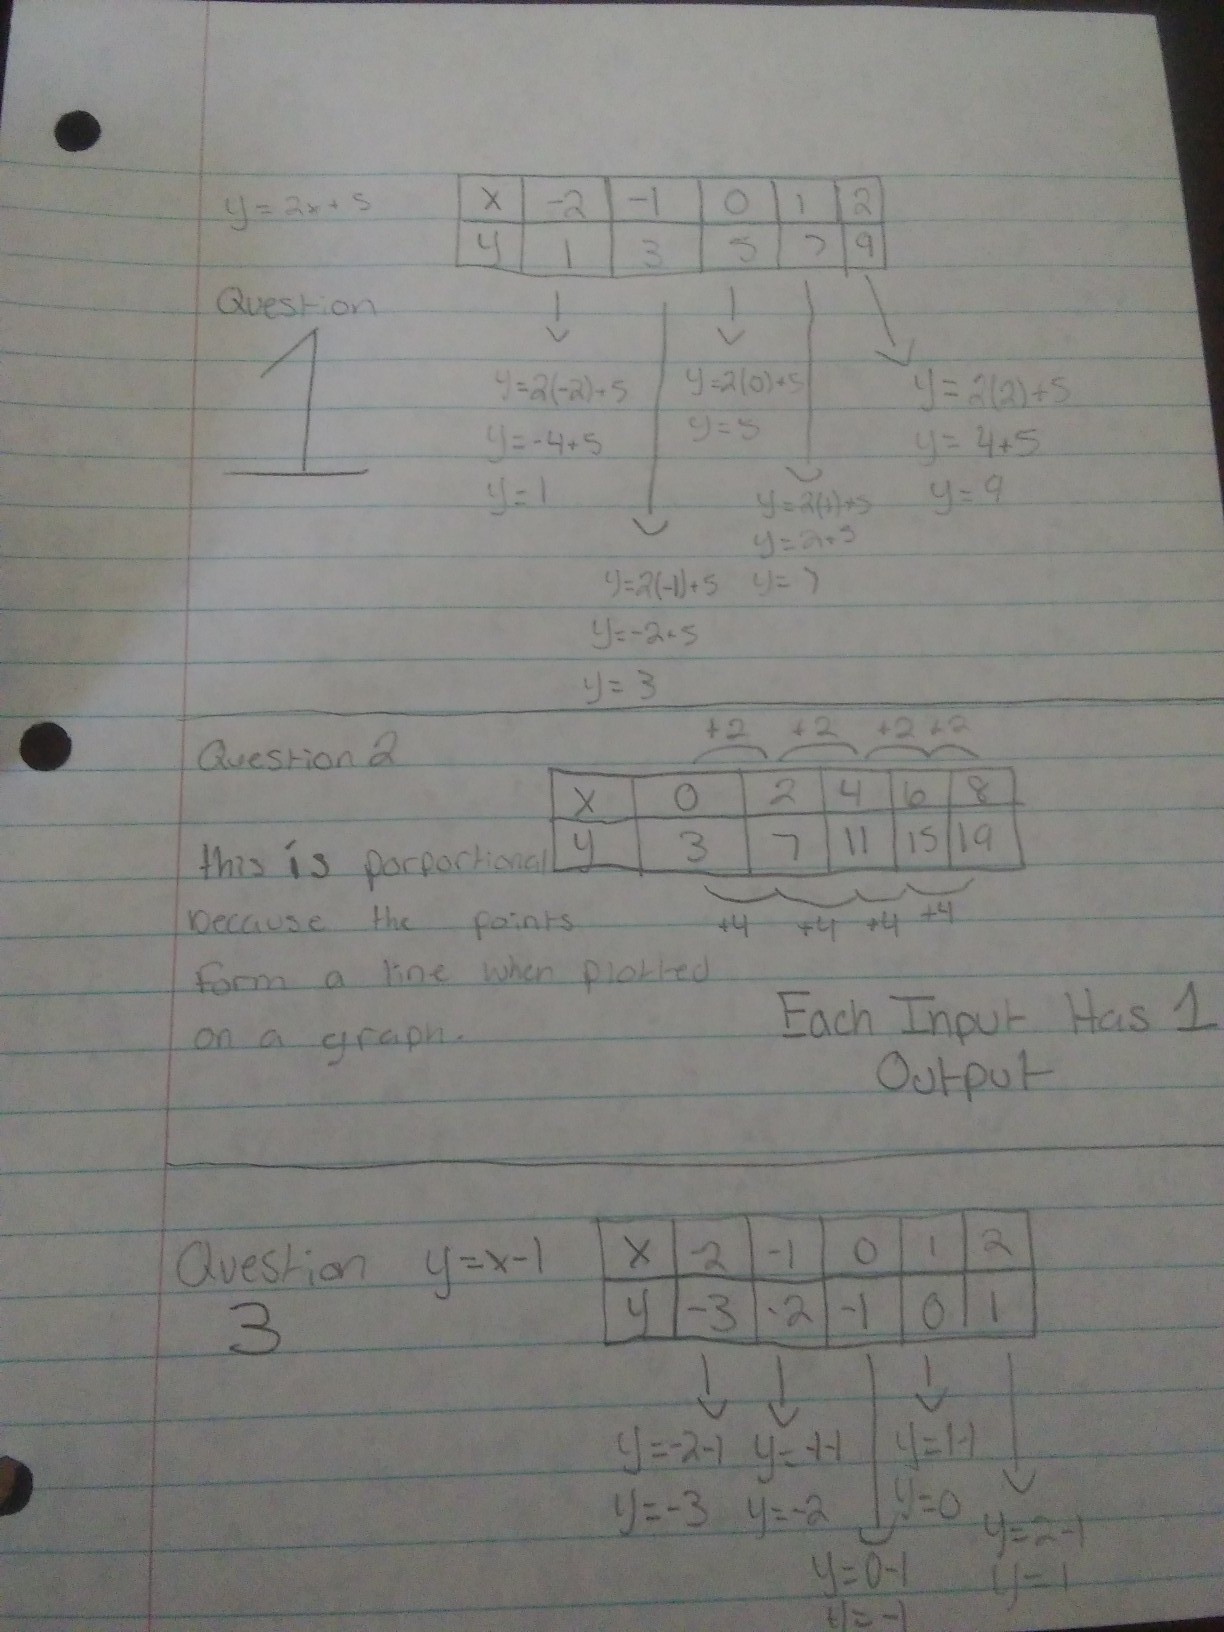 y = 2x + 5
x -2 -1 0 1 2
y 1 3 5 7 9
Question
1
y=2(-2)+5
y=-4+5
y=1
y=2(-1)+5
y=-2+5
y=3
y=2(0)+5
y=5
y=2(1)+5
y=2+5
y=7
y=2(2)+5
y=4+5
y=9
Question 2
+2 +2 +2 +2
x 0 2 4 6 8
y 3 7 11 15 19
+4 +4 +4 +4
this is porportional
because the points
form a line when plotted
on a graph.
Each Input Has 1
Output
Question
3
y=x-1
x -2 -1 0 1 2
y -3 -2 -1 0 1
y=-2-1
y=-3
y=-1-1
y=-2
y=0-1
y=-1
y=1-1
y=0
y=2-1
y=1